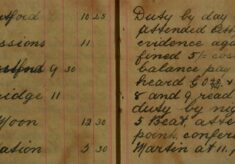 tford 10 25
ssions 11
9 30
idge 11
Woon 12 30
ation 5 30
Duty by day
attended
evidence aga
fined 5/- cos
balance pay
heard
8 and 9, read
duty by nig
5 Beat, atte
point, confer
Martin at 11,